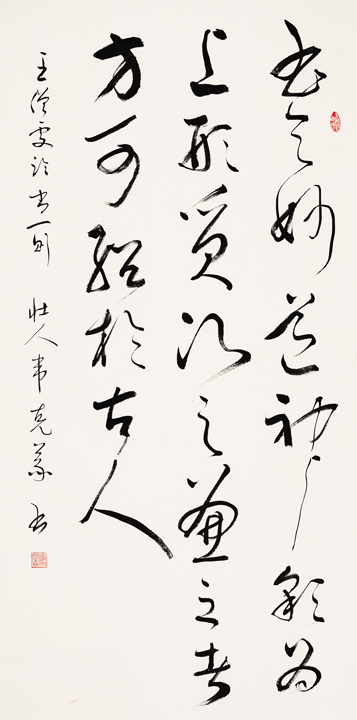 書之妙道神彩為
上形質次之兼之者
方可紹於古人
王僧虔論書一則 壯人韋克義書